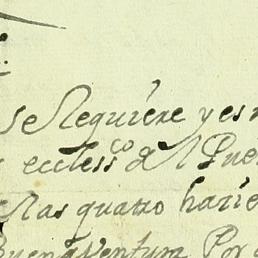 se Requiere y es n
ecclessco d
las quatro hazie
Buena Ventura Por